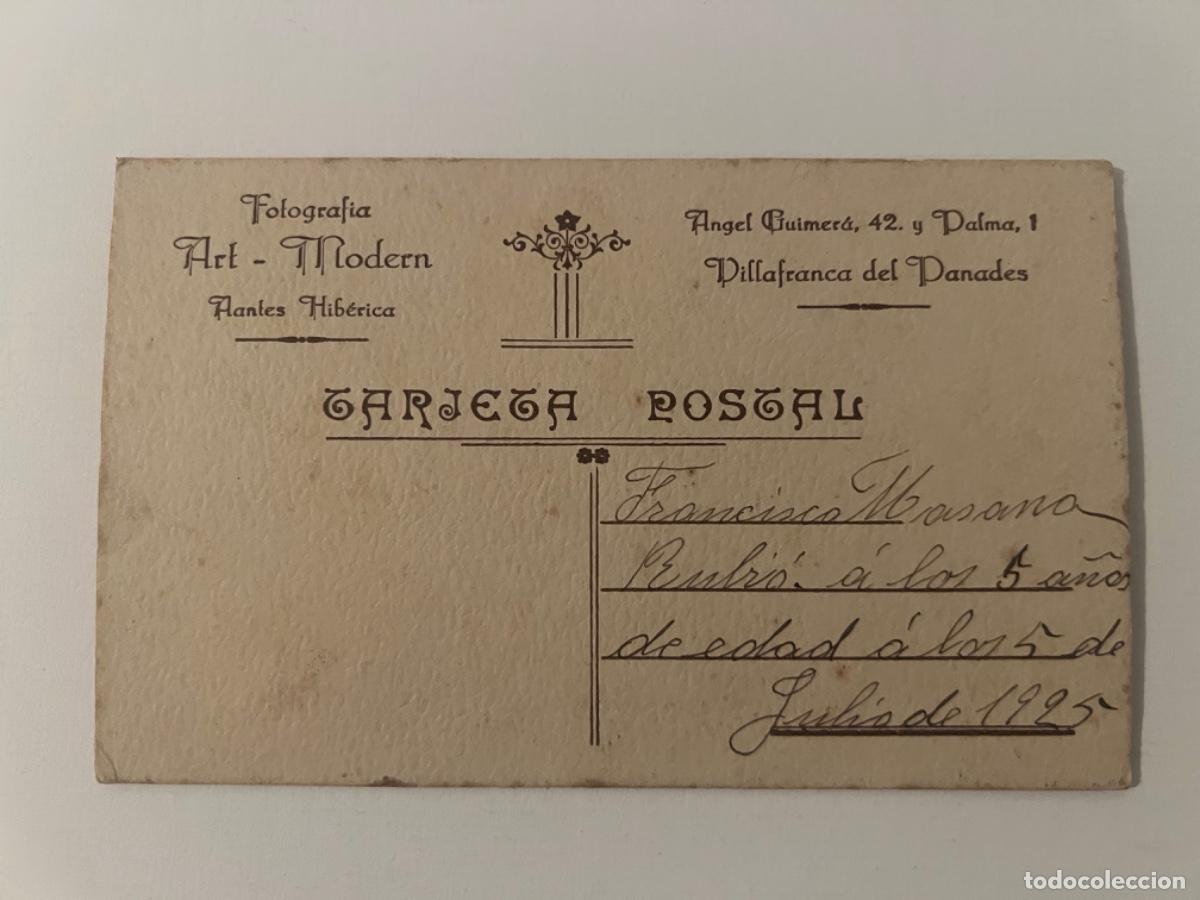 Fotografia
Art - Modern
Aantes Hibérica
Angel Guimerá, 42. y Palma, 1
Villafranca del Panades
TARJETA POSTAL
Francisco Masana
Rubió. á los 5 años
de edad á los 5 de
Julio de 1925
todocoleccion